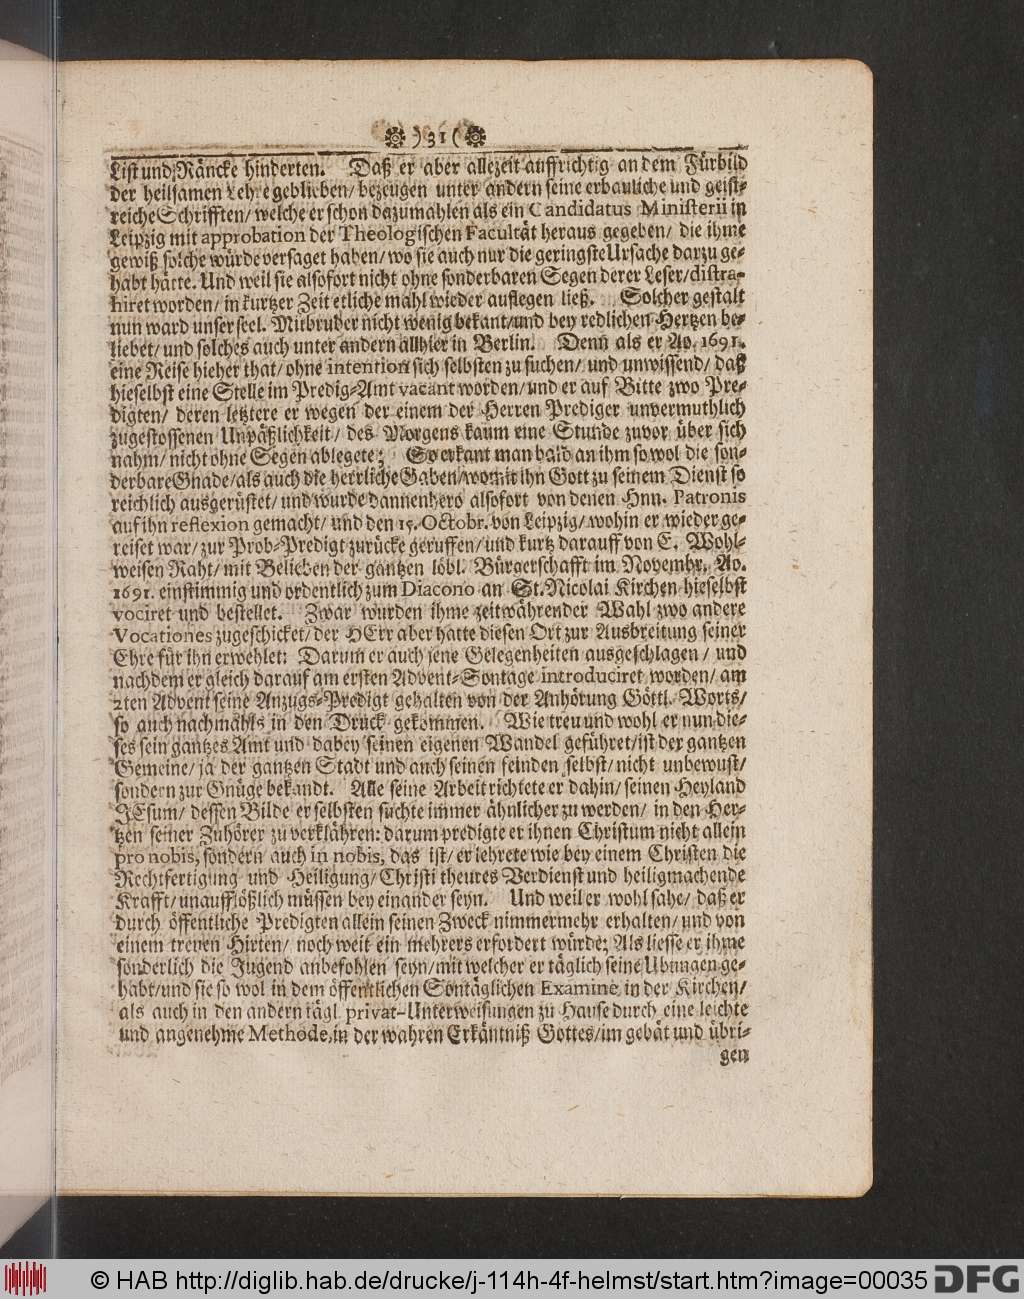 )31(
List und Räncke hinderten. Daß er aber allezeit auffrichtig an dem Fürbild
der heilsamen Lehre geblieben/ bezeugen unter andern seine erbauliche und geist-
reiche Schrifften/ welche er schon dazumahlen als ein Candidatus Ministerii in
Leipzig mit approbation der Theologischen Facultät heraus gegeben/ die ihme
gewiß solche würde versaget haben/ wo sie auch nur die geringste Ursache darzu ge-
habt hätte. Und weil sie alsofort nicht ohne sonderbaren Segen derer Leser/ distra-
hiret worden/ in kurtzer Zeit etliche mahl wieder auflegen ließ. Solcher gestalt
nun ward unser seel. Mitbruder nicht wenig bekant/ und bey redlichen Hertzen be-
liebet/ und solches auch unter andern allhier in Berlin. Denn als er Ao. 1691.
eine Reise hieher that/ ohne intention sich selbsten zu suchen/ und unwissend/ daß
hieselbst eine Stelle im Predig-Amt vacant worden/ und er auf Bitte zwo Pre-
digten/ deren letztere er wegen der einem der Herren Prediger unvermuthlich
zugestossenen Unpäßlichkeit/ des Morgens kaum eine Stunde zuvor über sich
nahm/ nicht ohne Segen ablegete; So erkant man bald an ihm so wol die son-
derbare Gnade/ als auch die herrliche Gaben/ womit ihn Gott zu seinem Dienst so
reichlich ausgerüstet/ und wurde dannenhero alsofort von denen Hnn. Patronis
auf ihn reflexion gemacht/ und den 15. Octobr. von Leipzig/ wohin er wieder ge-
reiset war/ zur Prob-Predigt zurücke geruffen/ und kurtz darauff von E. Wohl-
weisen Raht/ mit Belieben der gantzen löbl. Bürgerschafft im Novembr. Ao.
1691. einstimmig und ordentlich zum Diacono an St. Nicolai Kirchen hieselbst
vociret und bestellet. Zwar wurden ihme zeitwährender Wahl zwo andere
Vocationes zugeschicket/ der HErr aber hatte diesen Ort zur Ausbreitung seiner
Ehre für ihn erwehlet: Darum er auch jene Gelegenheiten ausgeschlagen/ und
nachdem er gleich darauf am ersten Advent-Sontage introduciret worden/ am
2ten Advent seine Anzugs-Predigt gehalten von der Anhörung Göttl. Worts/
so auch nachmahls in den Druck gekommen. Wie treu und wohl er nun die-
ses sein gantzes Amt und dabey seinen eigenen Wandel geführet/ ist der gantzen
Gemeine/ ja der gantzen Stadt und auch seinen feinden selbst/ nicht unbewust/
sondern zur Gnüge bekandt. Alle seine Arbeit richtete er dahin/ seinen Heyland
JEsum/ dessen Bilde er selbsten suchte immer ähnlicher zu werden/ in den Her-
tzen seiner Zuhörer zu verklähren: darum predigte er ihnen Christum nicht allein
pro nobis, sondern auch in nobis, das ist/ er lehrete wie bey einem Christen die
Rechtfertigung und Heiligung/ Christi theures Verdienst und heiligmachende
Krafft/ unaufflößlich müssen bey einander seyn. Und weil er wohl sahe/ daß er
durch öffentliche Predigten allein seinen Zweck nimmermehr erhalten/ und von
einem treuen Hirten/ noch weit ein mehrers erfordert würde; Als liesse er ihme
sonderlich die Jugend anbefohlen seyn/ mit welcher er täglich seine Ubungen ge-
habt/ und sie so wol in dem öffentlichen Sontäglichen Examine in der Kirchen/
als auch in den andern tägl. privat-Unterweisungen zu Hause durch eine leichte
und angenehme Methode, in der wahren Erkäntniß Gottes/ im gebät und übri-
gen
© HAB http://diglib.hab.de/drucke/j-114h-4f-helmst/start.htm?image=00035 DFG